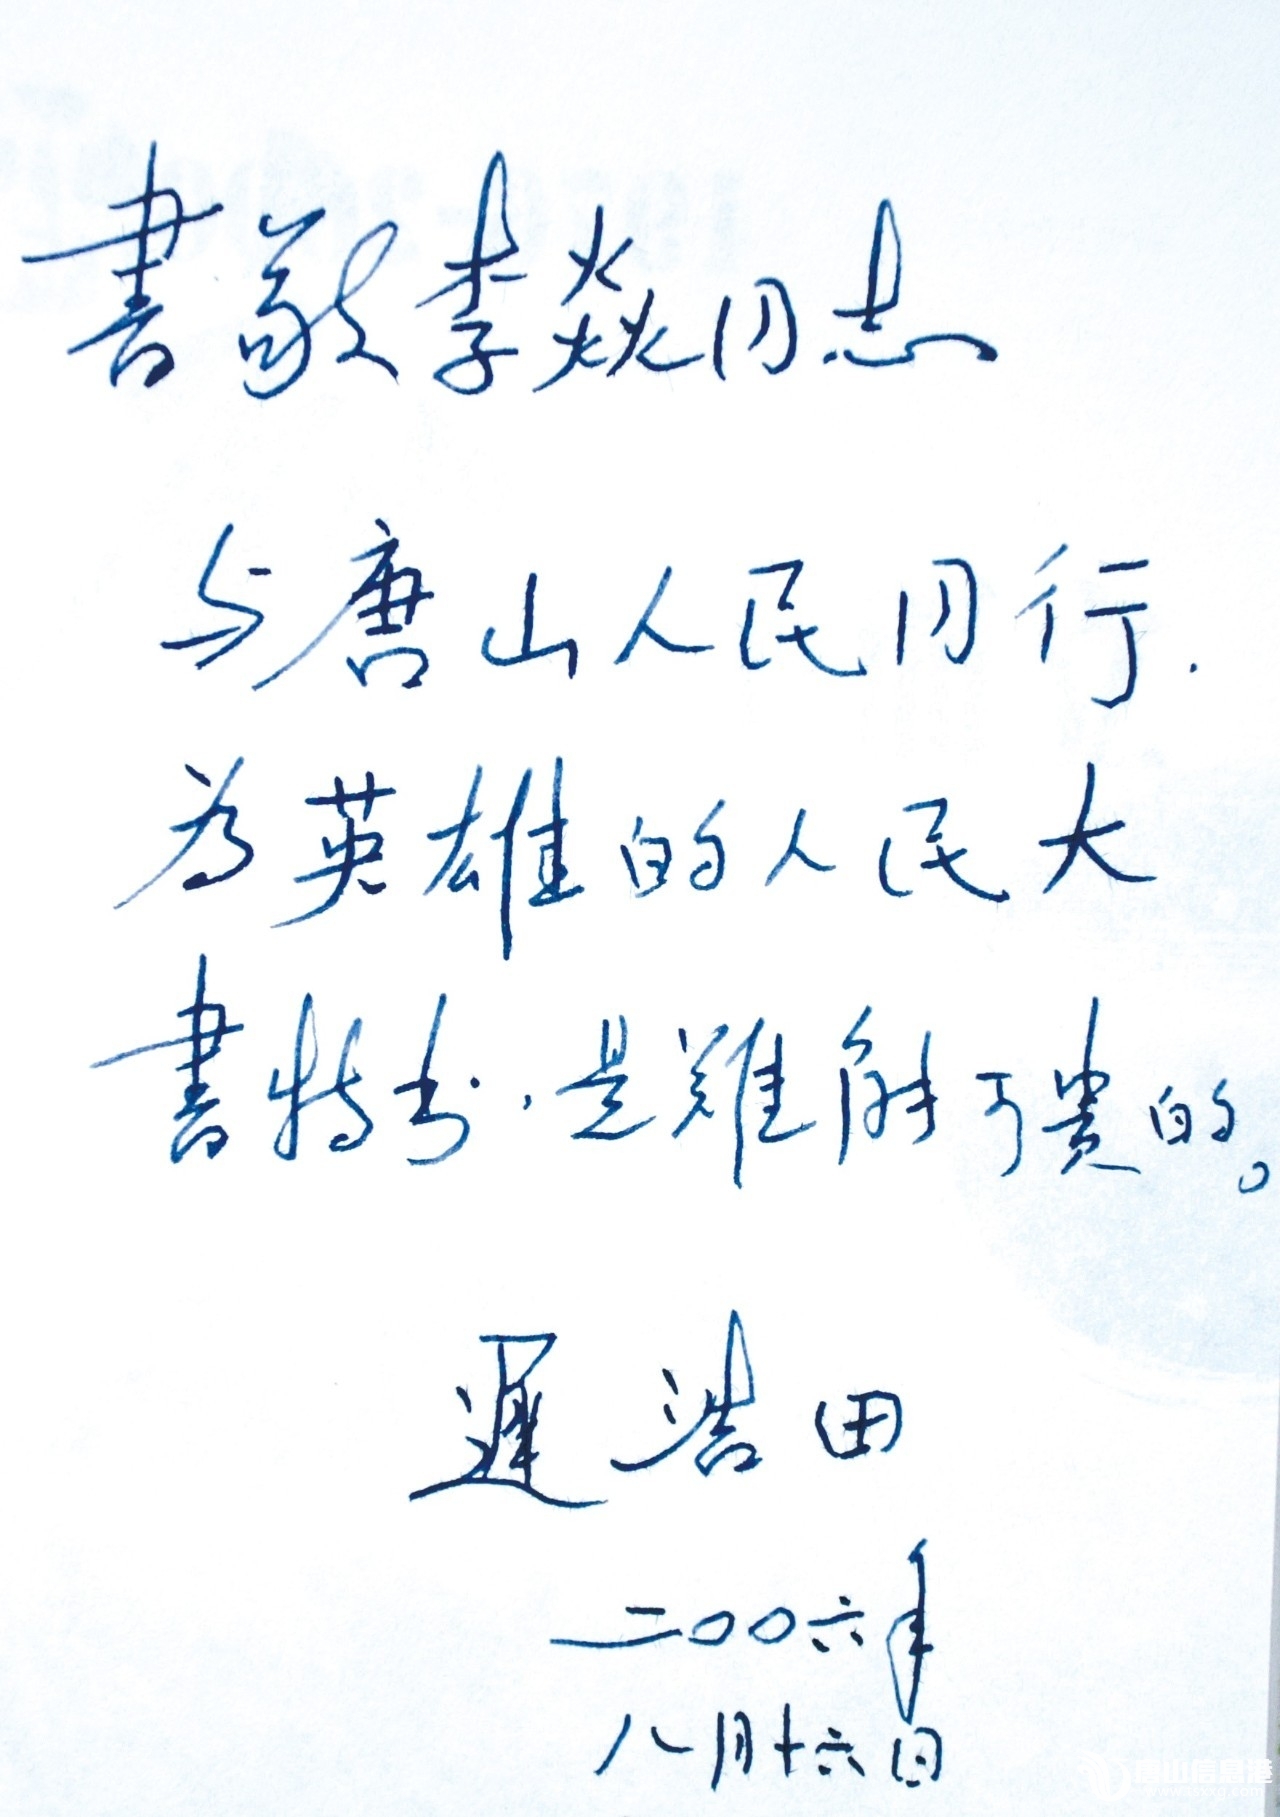 書敬李焱同志
与唐山人民同行.
为英雄的人民大
書特书,是難能可貴的。
遲浩田
二〇〇六年
八月十六日
唐山信息港